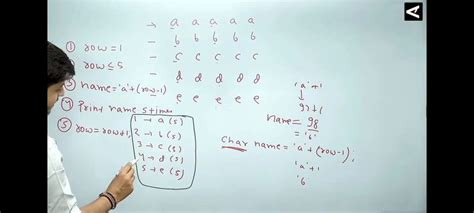 ① row = 1
② row ≤ 5
③ name = 'a' + (row-1)
④ Print name 5 times
⑤ row = row+1;
→ a a a a a
- b b b b b
- c c c c c
- d d d d d
e e e e e
1 → a (5)
2 → b (5)
3 → c (5)
4 → d (5)
5 → e (5)
'a'+1
↓
97+1
name = 98
= 'b'
char name = 'a' + (row-1);
'a'+1
'b'